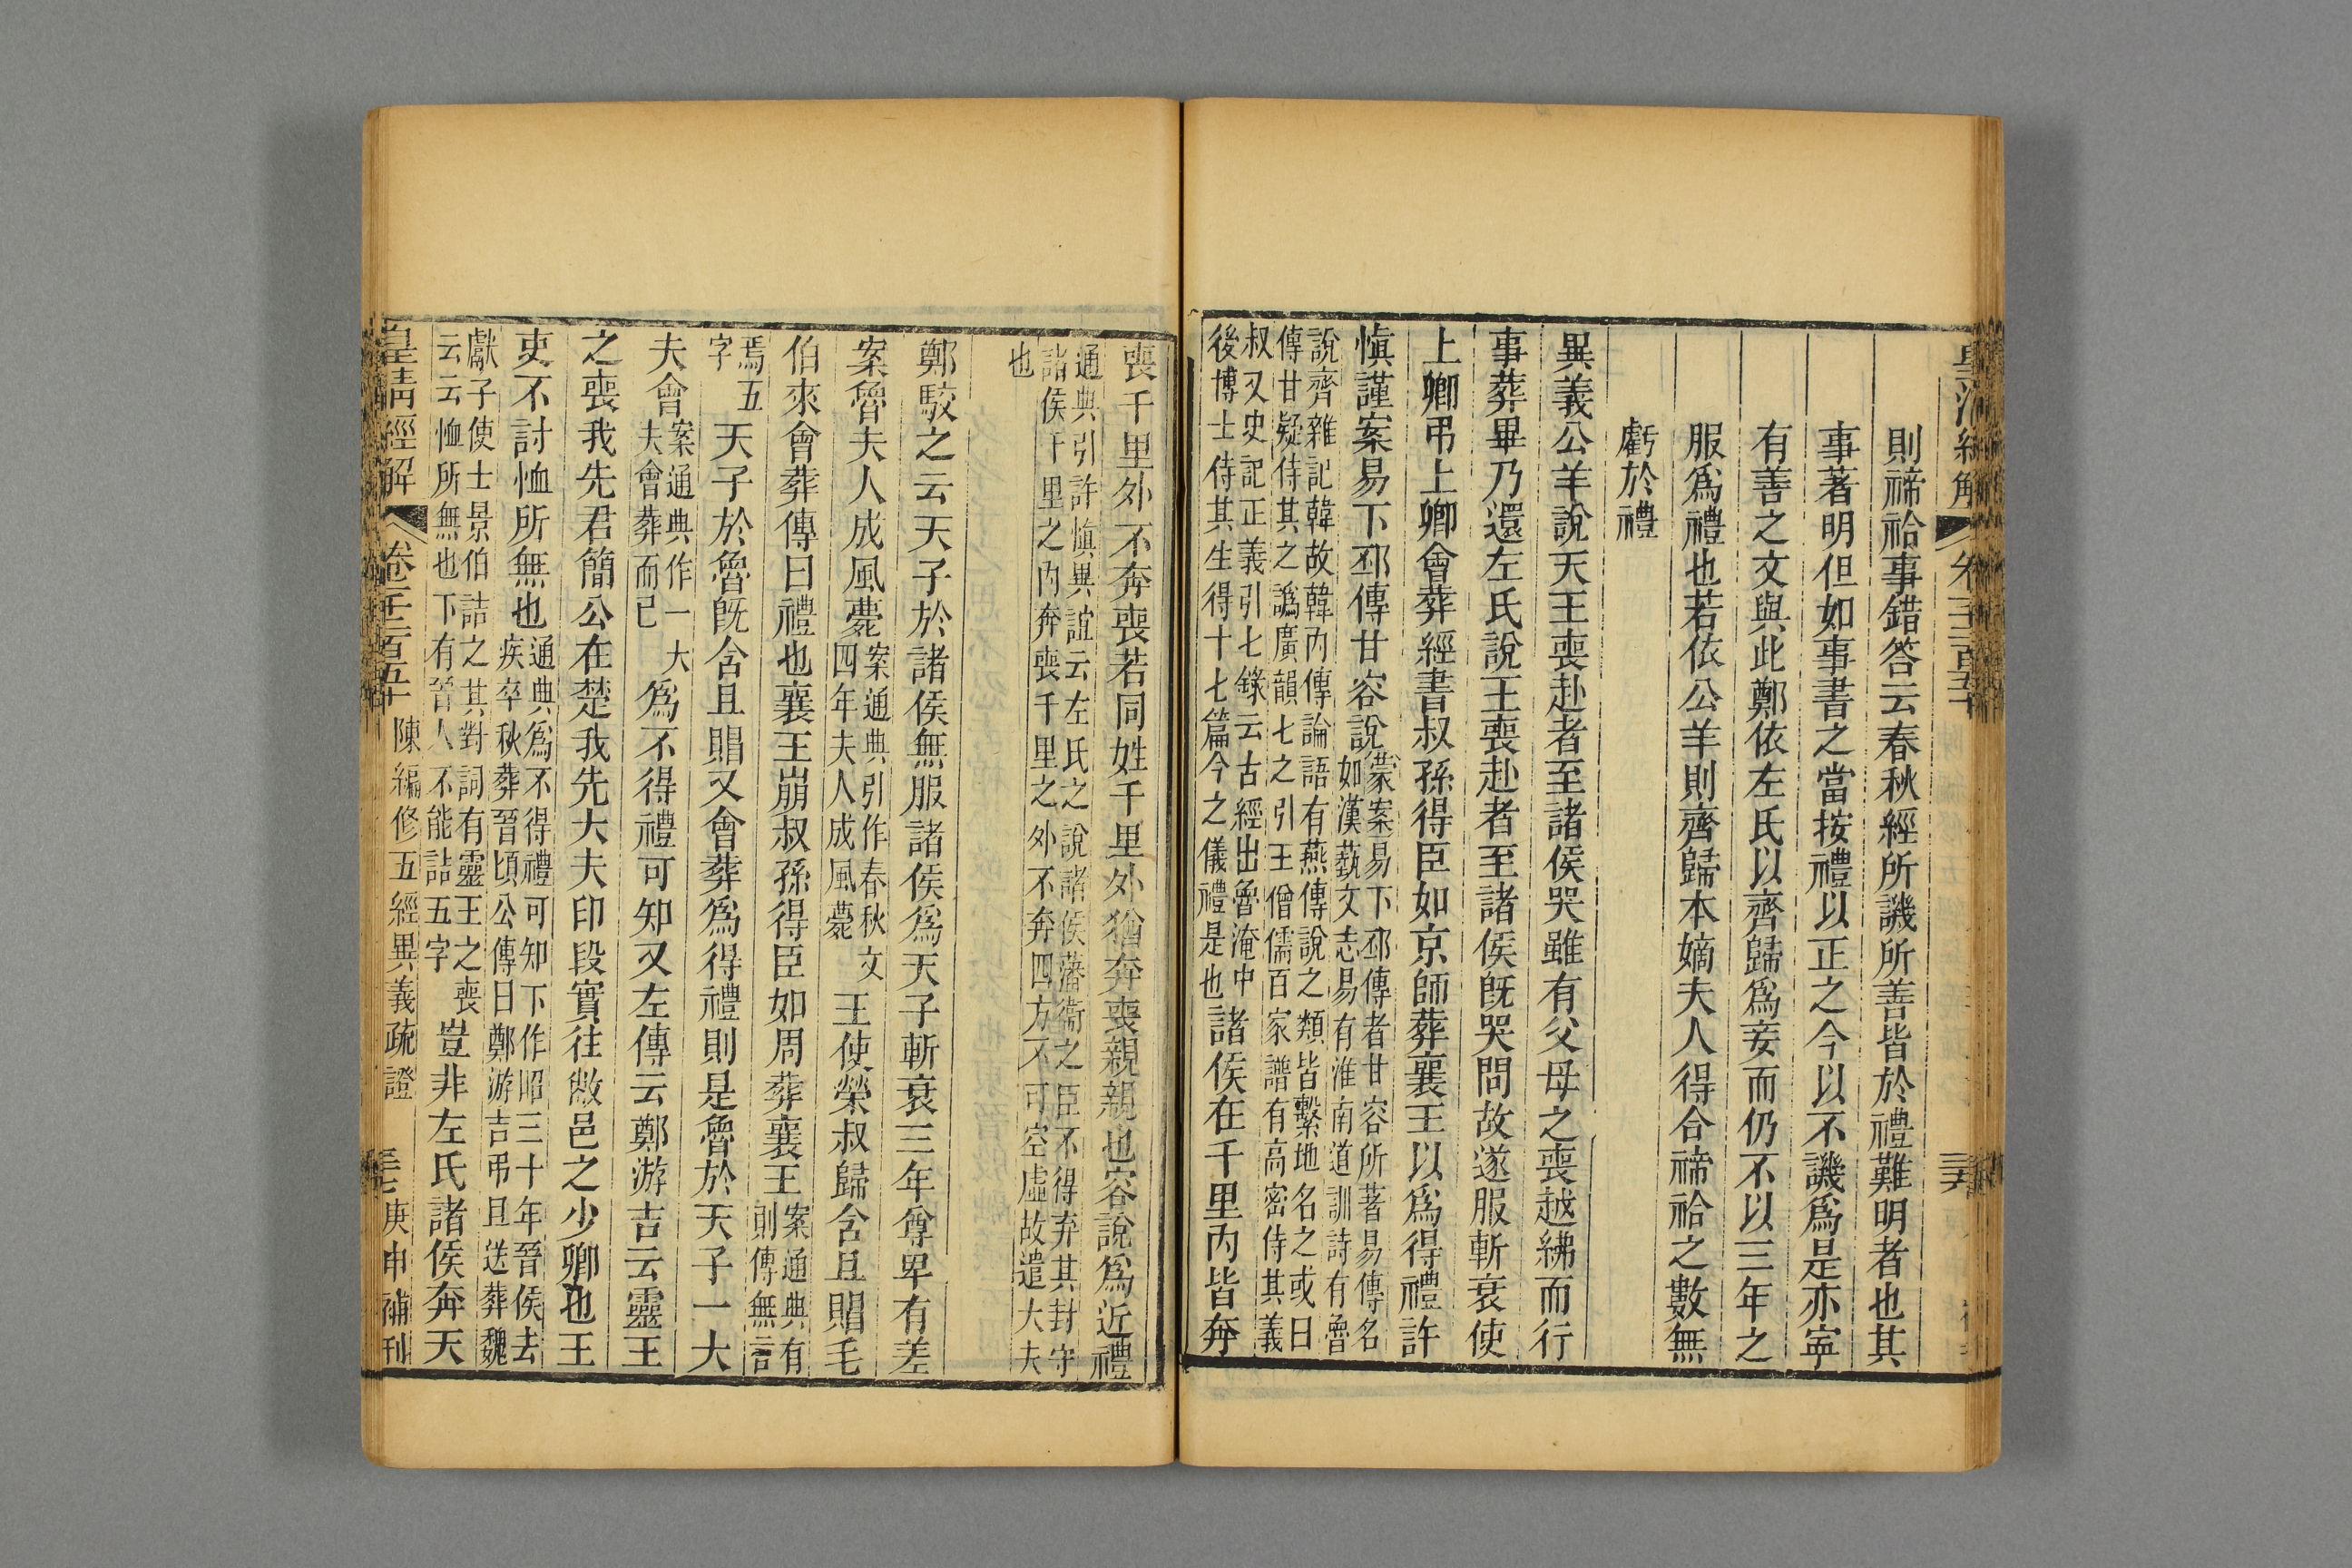 則禘祫事錯答云春秋經所譏所善皆於禮難明者也其
事著明但如事書之當按禮以正之今以不譏爲是亦寧
有善之文與此鄭依左氏以齊歸爲妾而仍不以三年之
服爲禮也若依公羊則齊歸本嫡夫人得合禘祫之數無
虧於禮
異義公羊說天王喪赴者至諸侯哭雖有父母之喪越紼而行
事葬畢乃還左氏說王喪赴者至諸侯旣哭問故遂服斬衰使
上卿弔上卿會葬經書叔孫得臣如京師葬襄王以爲得禮許
愼謹案易下邳傳甘容說
蒙案易下邳傳者甘容所著易傳名
如漢藝文志易有淮南道訓詩有魯
說齊雜記韓故韓內傳論語有燕傳說之類皆繫地名之或曰
傳甘疑侍其之譌廣韻七之引王僧儒百家譜有高密侍其義
叔又史記正義引七錄云古經出魯淹中
後博士侍其生得十七篇今之儀禮是也
諸侯在千里內皆奔
喪千里外不奔喪若同姓千里外猶奔喪親親也容說爲近禮
通典引許愼異誼云左氏之說諸侯藩衞之臣不得弃其封守
諸侯千里之內奔喪千里之外不奔四方不可空虛故遣大夫
也
鄭駮之云天子於諸侯無服諸侯爲天子斬衰三年尊卑有差
案魯夫人成風薨
案通典引作春秋文
四年夫人成風薨
王使榮叔歸含且賵毛
伯來會葬傳曰禮也襄王崩叔孫得臣如周葬襄王
案通典有
則傳無言
焉五
字
天子於魯旣含且賵又會葬爲得禮則是魯於天子一大
夫會
案通典作一大
夫會葬而已
爲不得禮可知又左傳云鄭游吉云靈王
之喪我先君簡公在楚我先大夫印段實往敝邑之少卿也王
吏不討恤所無也
通典爲不得禮可知下作昭三十年晉侯去
疾卒秋葬晉頃公傳曰鄭游吉弔且送葬魏
獻子使士景伯詰之其對詞有靈王之喪
云云恤所無也下有晉人不能詰五字
豈非左氏諸侯奔天
皇淸經解
卷千二百五十
陳編修五經異義疏證
三七
庚申補刊